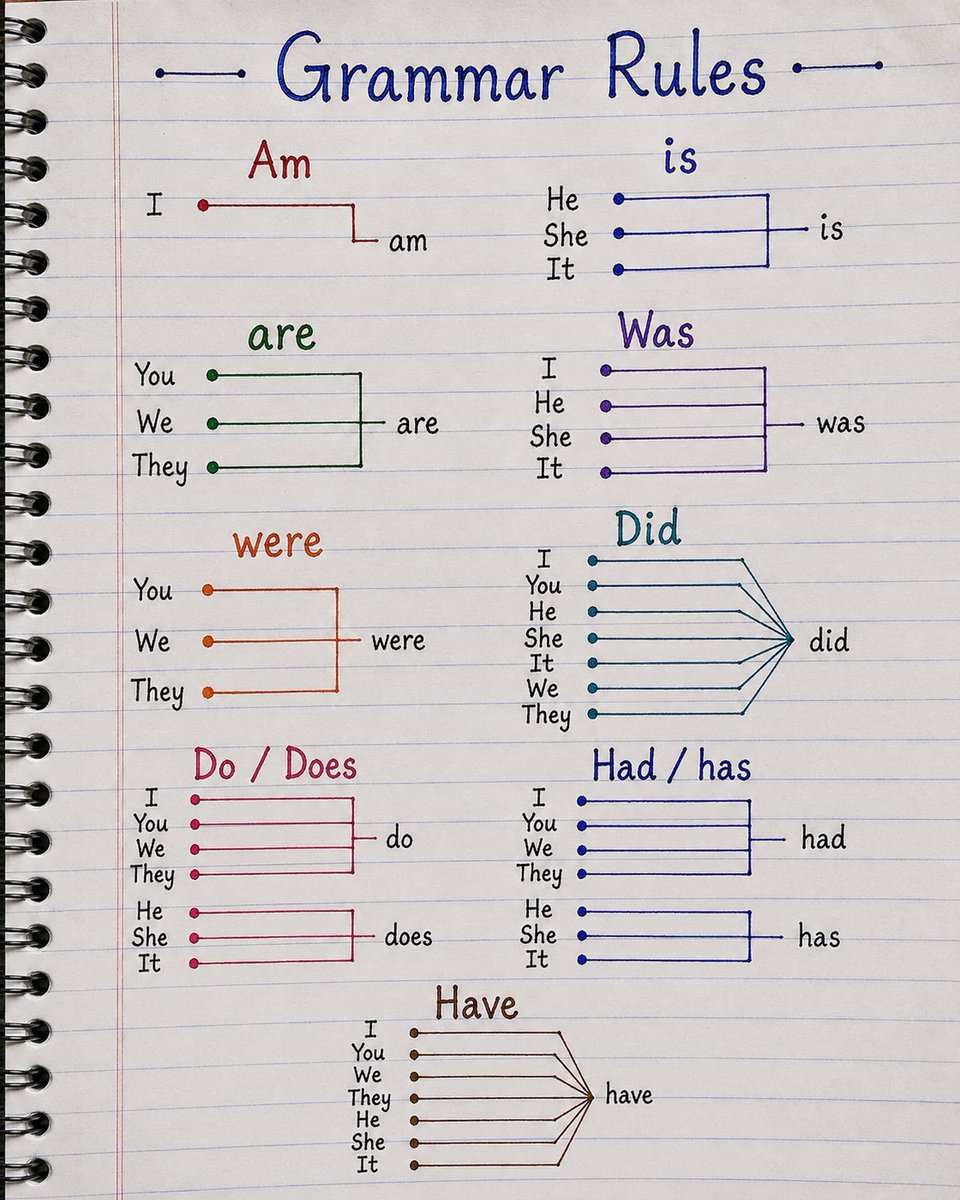 Grammar Rules
Am
I
am
is
He
She
It
is
are
You
We
They
are
Was
I
He
She
It
was
were
You
We
They
were
Did
I
You
He
She
It
We
They
did
Do / Does
I
You
We
They
do
He
She
It
does
Had / has
I
You
We
They
had
He
She
It
has
Have
I
You
We
They
He
She
It
have